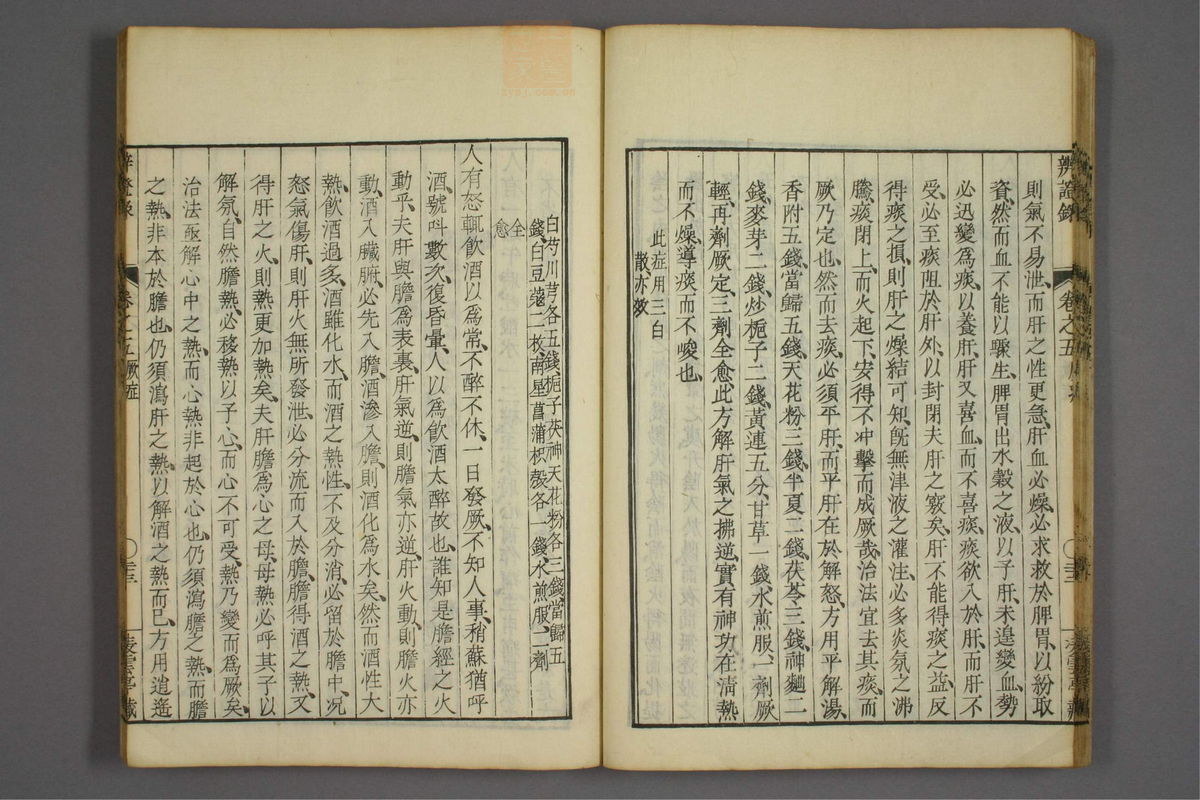 則氣不易泄、而肝之性更急、肝血必燥、必求救於脾胃、以紛取
資、然而血不能以驟生、脾胃出水糓之液、以子肝、未遑變血、勢
必迅變爲痰、以養肝、肝又喜血、而不喜痰、痰欲入於肝、而肝不
受、必至痰阻於肝外、以封閉夫肝之竅矣、肝不能得痰之益、反
得痰之損、則肝之燥結可知、旣無津液之灌注、必多炎氛之沸
騰、痰閉上、而火起下、安得不冲擊而成厥哉、治法宜去其痰、而
厥乃定也、然而去痰、必須平肝、而平肝在於解怒、方用平解湯、
香附五錢、當歸五錢、天花粉三錢、半夏二錢、茯苓三錢、神麯二
錢、麥芽二錢、炒梔子二錢、黃連五分、甘草一錢、水煎服、一劑厥
輕、再劑厥定、三劑全愈、此方解肝氣之拂逆、實有神功、在淸熱
而不燥、導痰而不峻也、
此症用三白
散亦效
白芍川芎各五錢、梔子茯神天花粉各三錢、當歸五
錢、白豆蔻二枚、南星菖蒲枳殼各一錢、水煎服、一劑
全
愈
人有怒輒飲酒以爲常、不醉不休、一日發厥、不知人事、稍蘇猶呼
酒、號呌數次、復昏暈、人以爲飲酒太醉故也、誰知是膽經之火
動乎、夫肝與膽爲表裏、肝氣逆、則膽氣亦逆、肝火動、則膽火亦
動、酒入臟腑、必先入膽、酒滲入膽、則酒化爲水矣、然而酒性大
熱、飲酒過多、酒雖化水、而酒之熱性、不及分消、必留於膽中、况
怒氣傷肝、則肝火無所發泄、必分流而入於膽、膽得酒之熱、又
得肝之火、則熱更加熱矣、夫肝膽爲心之母、母熱必呼其子以
解氛、自然膽熱、必移熱以子心、而心不可受熱、乃變而爲厥矣、
治法亟解心中之熱、而心熱非起於心也、仍須瀉膽之熱、而膽
之熱、非本於膽也、仍須瀉肝之熱、以解酒之熱而已、方用逍遙
卷之五 厥症